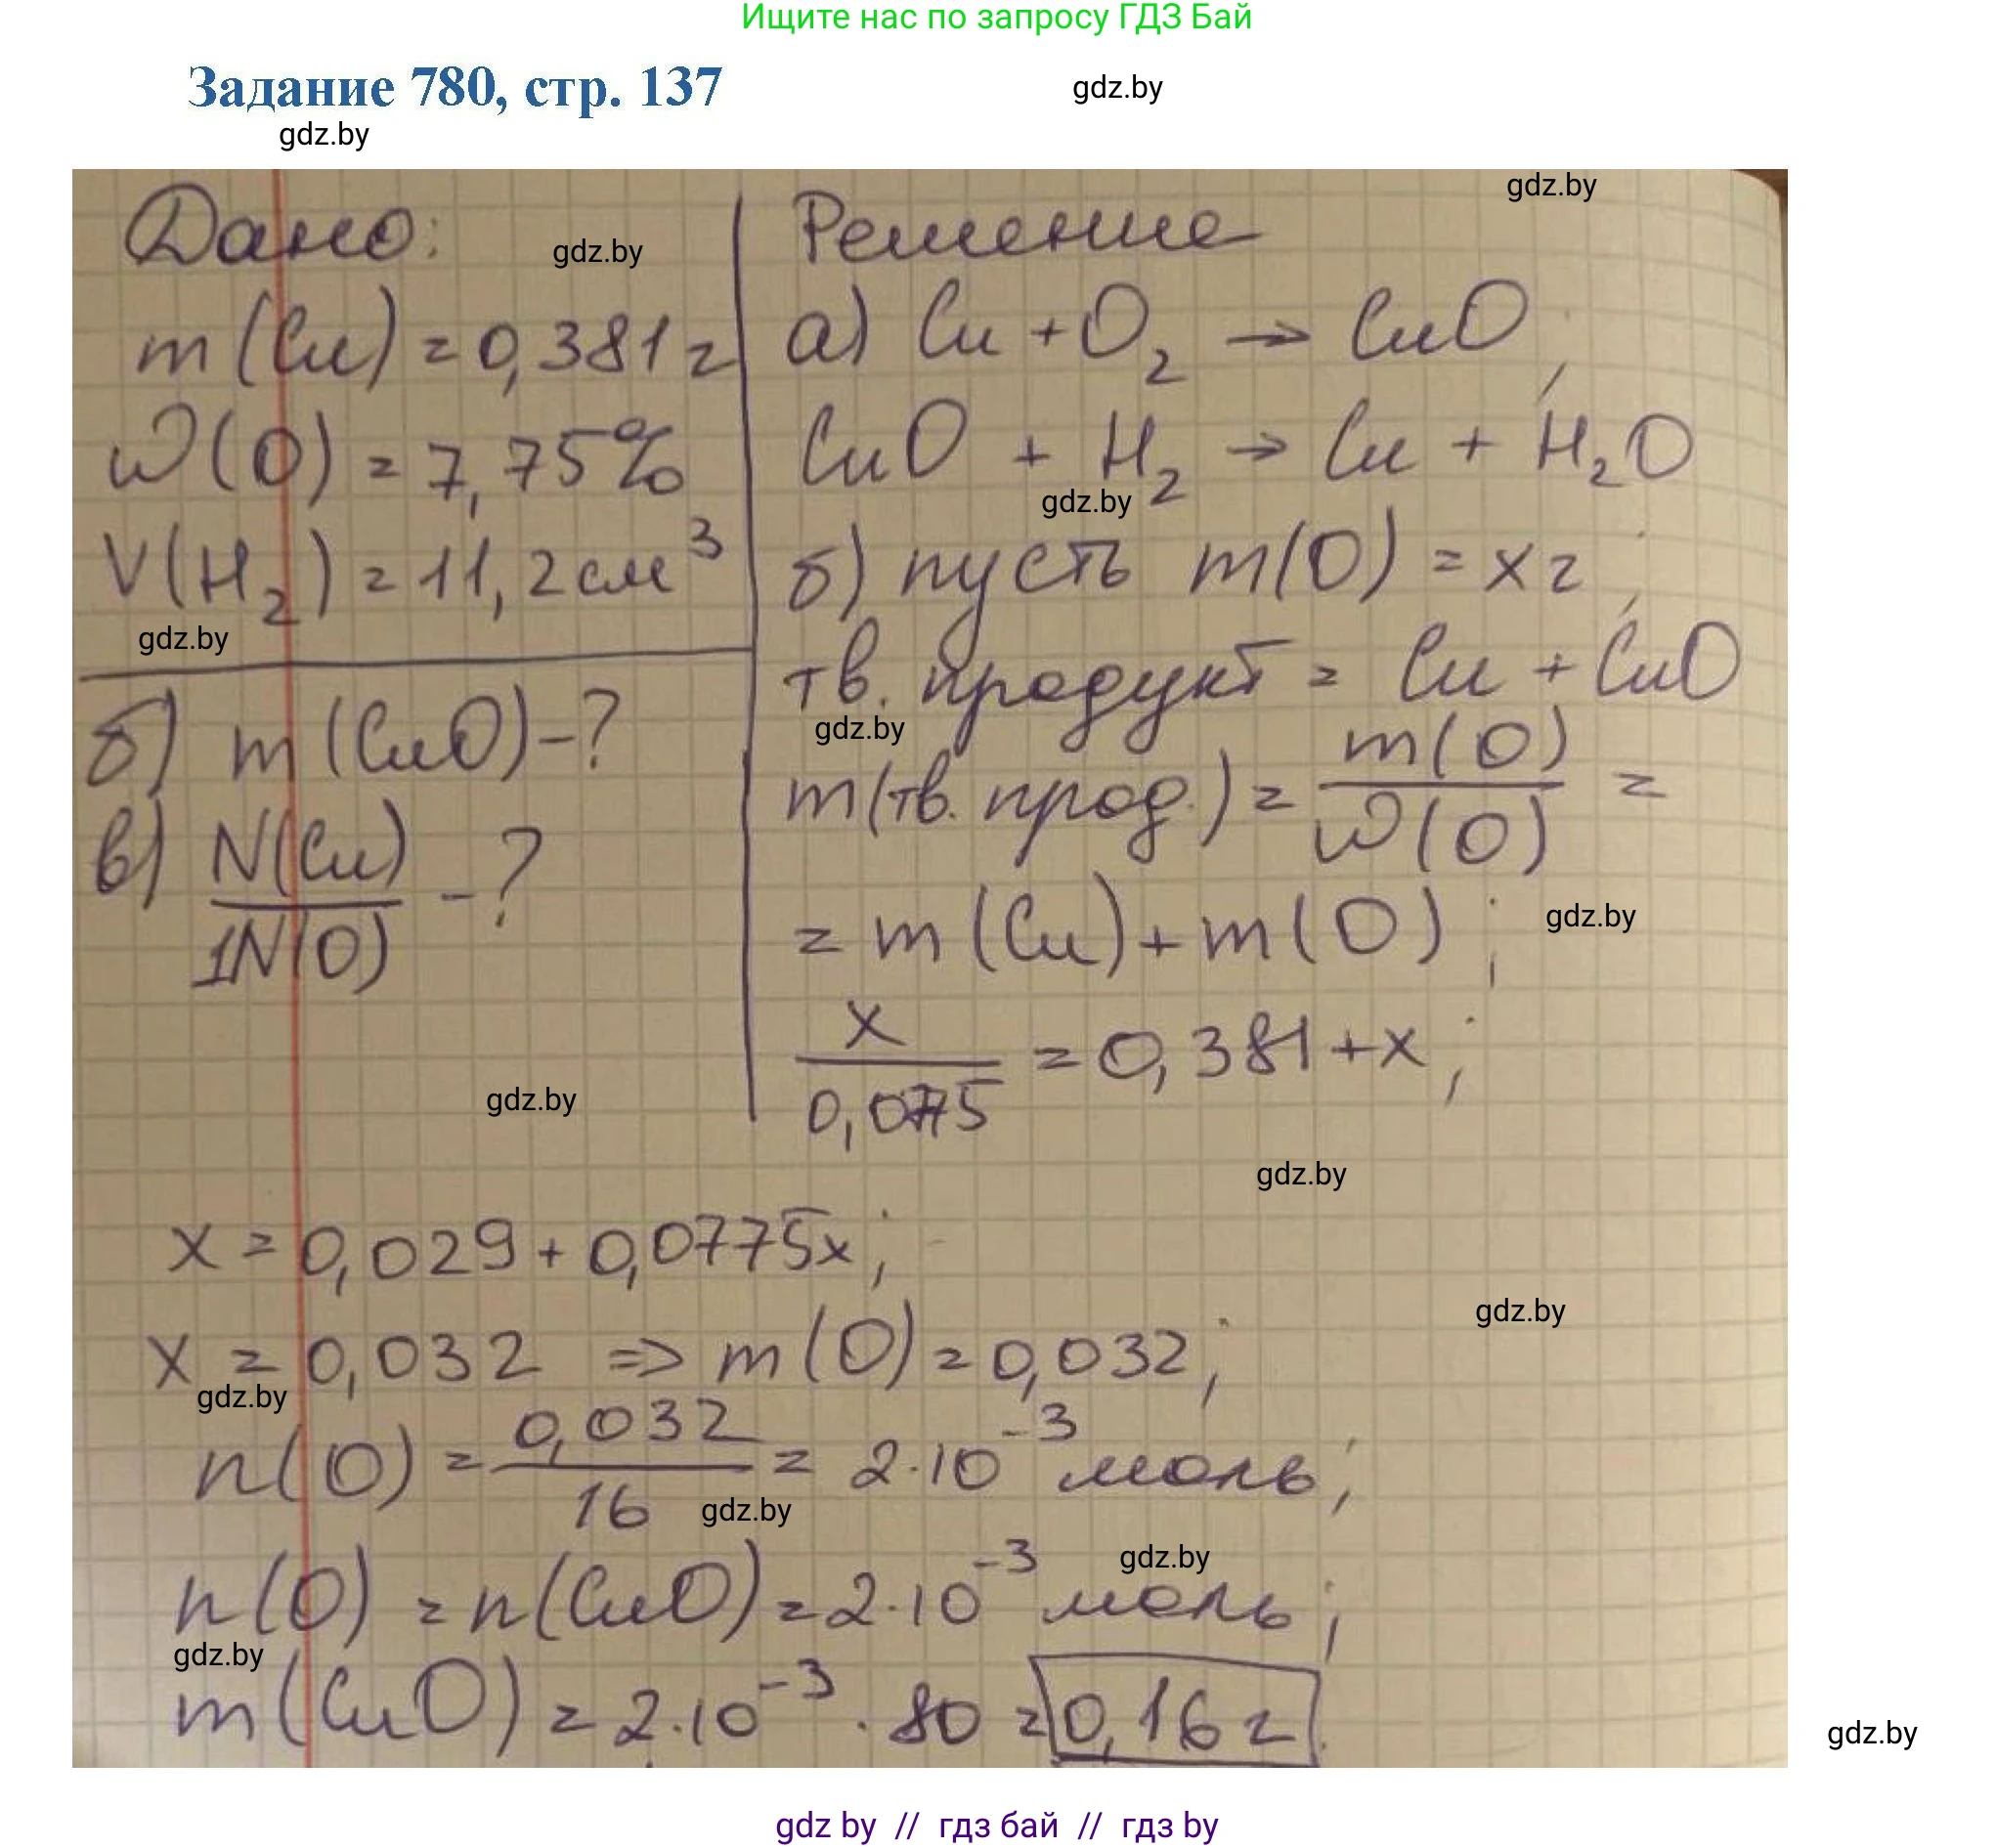 Ищите нас по запросу ГДЗ Бай
Задание 780, стр. 137
gdz.by
gdz.by
gdz.by
Дано:
gdz.by
m(Cu) = 0,381 г
W(O) = 7,75%
V(H₂) = 11,2 см³
gdz.by
б) m(CuO) - ?
в) N(Cu)
1N(O) - ?
gdz.by
Решение
а) Cu + O₂ → CuO;
CuO + H₂ → Cu + H₂O
gdz.by
б) пусть m(O) = x г;
тв. продукт = Cu + CuO
gdz.by
m(тв. прод.) = m(O)
W(O) =
= m(Cu) + m(O);
gdz.by
x
0,075 = 0,381 + x;
gdz.by
x = 0,029 + 0,0775x;
gdz.by
x = 0,032 => m(O) = 0,032;
gdz.by
n(O) = 0,032
16 = 2·10⁻³ моль;
gdz.by
gdz.by
n(O) = n(CuO) = 2·10⁻³ моль;
gdz.by
m(CuO) = 2·10⁻³ · 80 = 0,16 г.
gdz.by
gdz by // гдз бай // гдз by